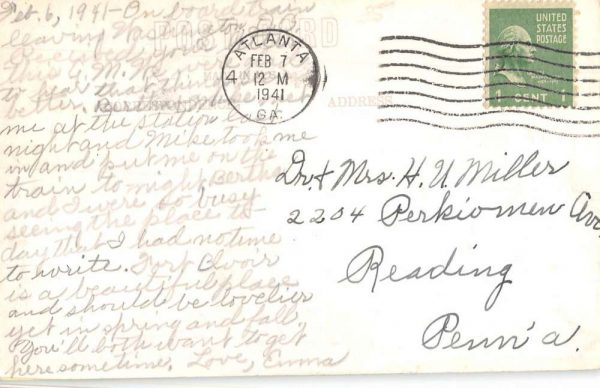 Feb. 6, 1941 - On board train
leaving Washington, D.C.
this A.M.
to hear that
better.
me at the station last
night and Mike took me
in and put me on the
train to night. Bertha
and I were so busy
seeing the place to-
day that I had no time
to write. Fort Belvoir
is a beautiful place
and should be lovelier
yet in spring and fall.
You'll both want to get
here sometime. Love, Emma
POST CARD
ADDRESS
ATLANTA
4
FEB 7
12 M
1941
GA.
UNITED
STATES
POSTAGE
1 CENT 1
Dr & Mrs. H. U. Miller
2204 Perkiomen Ave.
Reading
Penn'a.